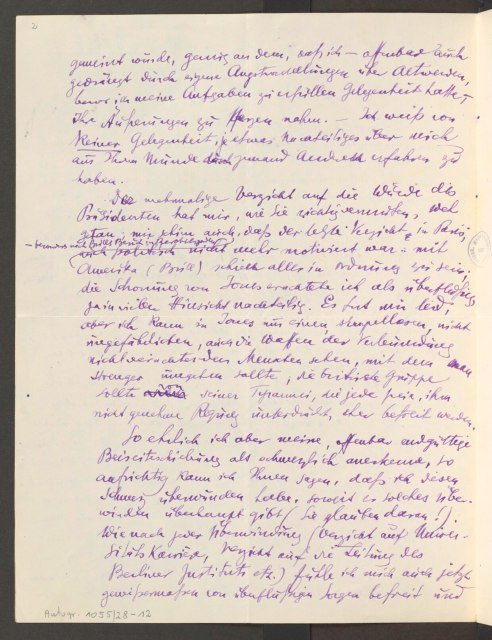 2
gemeint wurde, genug an dem, daß ich – offenbar auch
gedrängt durch eigene Angstvorstellungen über Altwerden,
bevor ich meine Aufgaben zu erfüllen Gelegenheit hatte –
Ihre Äußerungen zu Herzen nahm. – Ich weiß von
keiner Gelegenheit, je etwas Nachteiliges über mich
aus Ihrem Munde jemand anderen erfahren zu
haben.
Der mehmalige Verzicht auf die Würde des
Präsidenten hat mir, wie Sie richtig vermuten, weh
getan; mir schien auch, daß der letzte Verzicht, in Paris,
– besonders nach
nicht mehr motiviert war: mit
Amerika (Brill) schien alles in Ordnung zu sein,
die Schonung von Jones erachtete ich als überflüssig
ja in vieler Hinsicht nachteilig. Es tut mir leid,
aber ich kann in Jones nur einen skrupellosen, nicht
ungefährlichen, auch die Waffen der Verleumdung
nicht verachtenden Menschen sehen, mit dem man
strenger umgehen sollte, die britische Gruppe
sollte seiner Tyrannei, die jede freie, ihm
nicht genehme Regung unterdrückt, eher befreit werden.
So ehrlich ich aber meine, offenbar endgültige
Beiseiteschiebung als schmerzlich anerkenne, so
aufrichtig kann ich Ihnen sagen, daß ich diesen
Schmerz überwunden habe, soweit es solches Über-
winden überhaupt gibt (Sie glauben daran!).
Wie nach jeder Überwindung (Verzicht auf Univer-
sitäts Karriere, Verzicht auf die Leitung des
Berliner Instituts etc.) fühle ich mich auch jetzt
gewißermaßen von überflüssigen Sorgen befreit und
Autogr. 1055/28-12